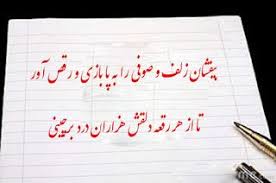 بیفشان زلف و صوفی را به پا بازی و رقص آور
تا از هر رقعه دلقش هزاران درد برچینی